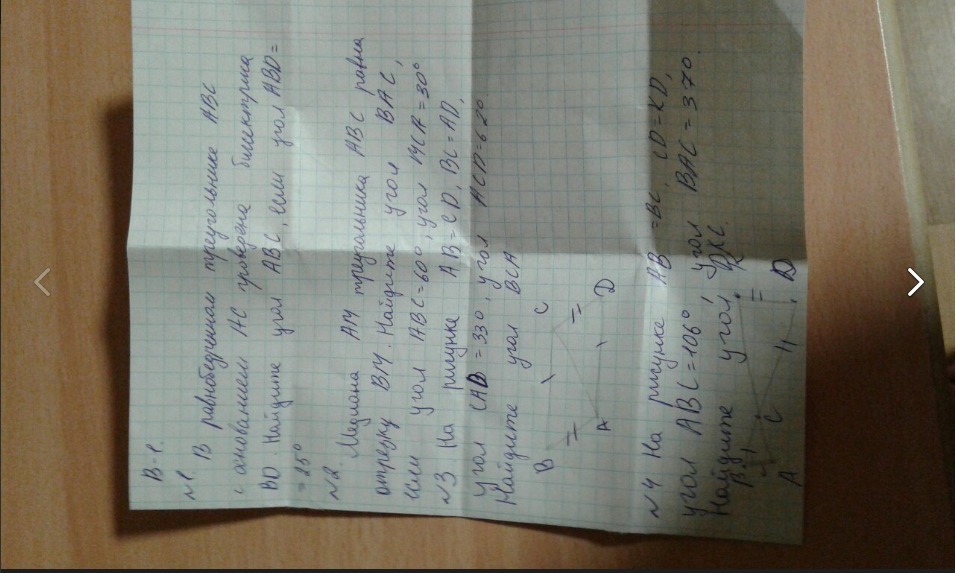 В-1.
№1 В равнобедренном треугольнике ABC
с основанием AC проведена биссектриса
BD. Найдите угол ABC, если угол ABD=
= 85°
№2. Медиана AM треугольника ABC равна
отрезку BM. Найдите угол BAC,
если угол ABC=60°, угол MCA=30°
№3 На рисунке AB=CD, BC=AD,
угол CAD=330, угол ACD=620
Найдите угол BCA
B
C
A
D
№4 На рисунке AB=BC, CD=KD,
угол ABC=106°, угол BAC=370.
Найдите угол DKC
B
C
A